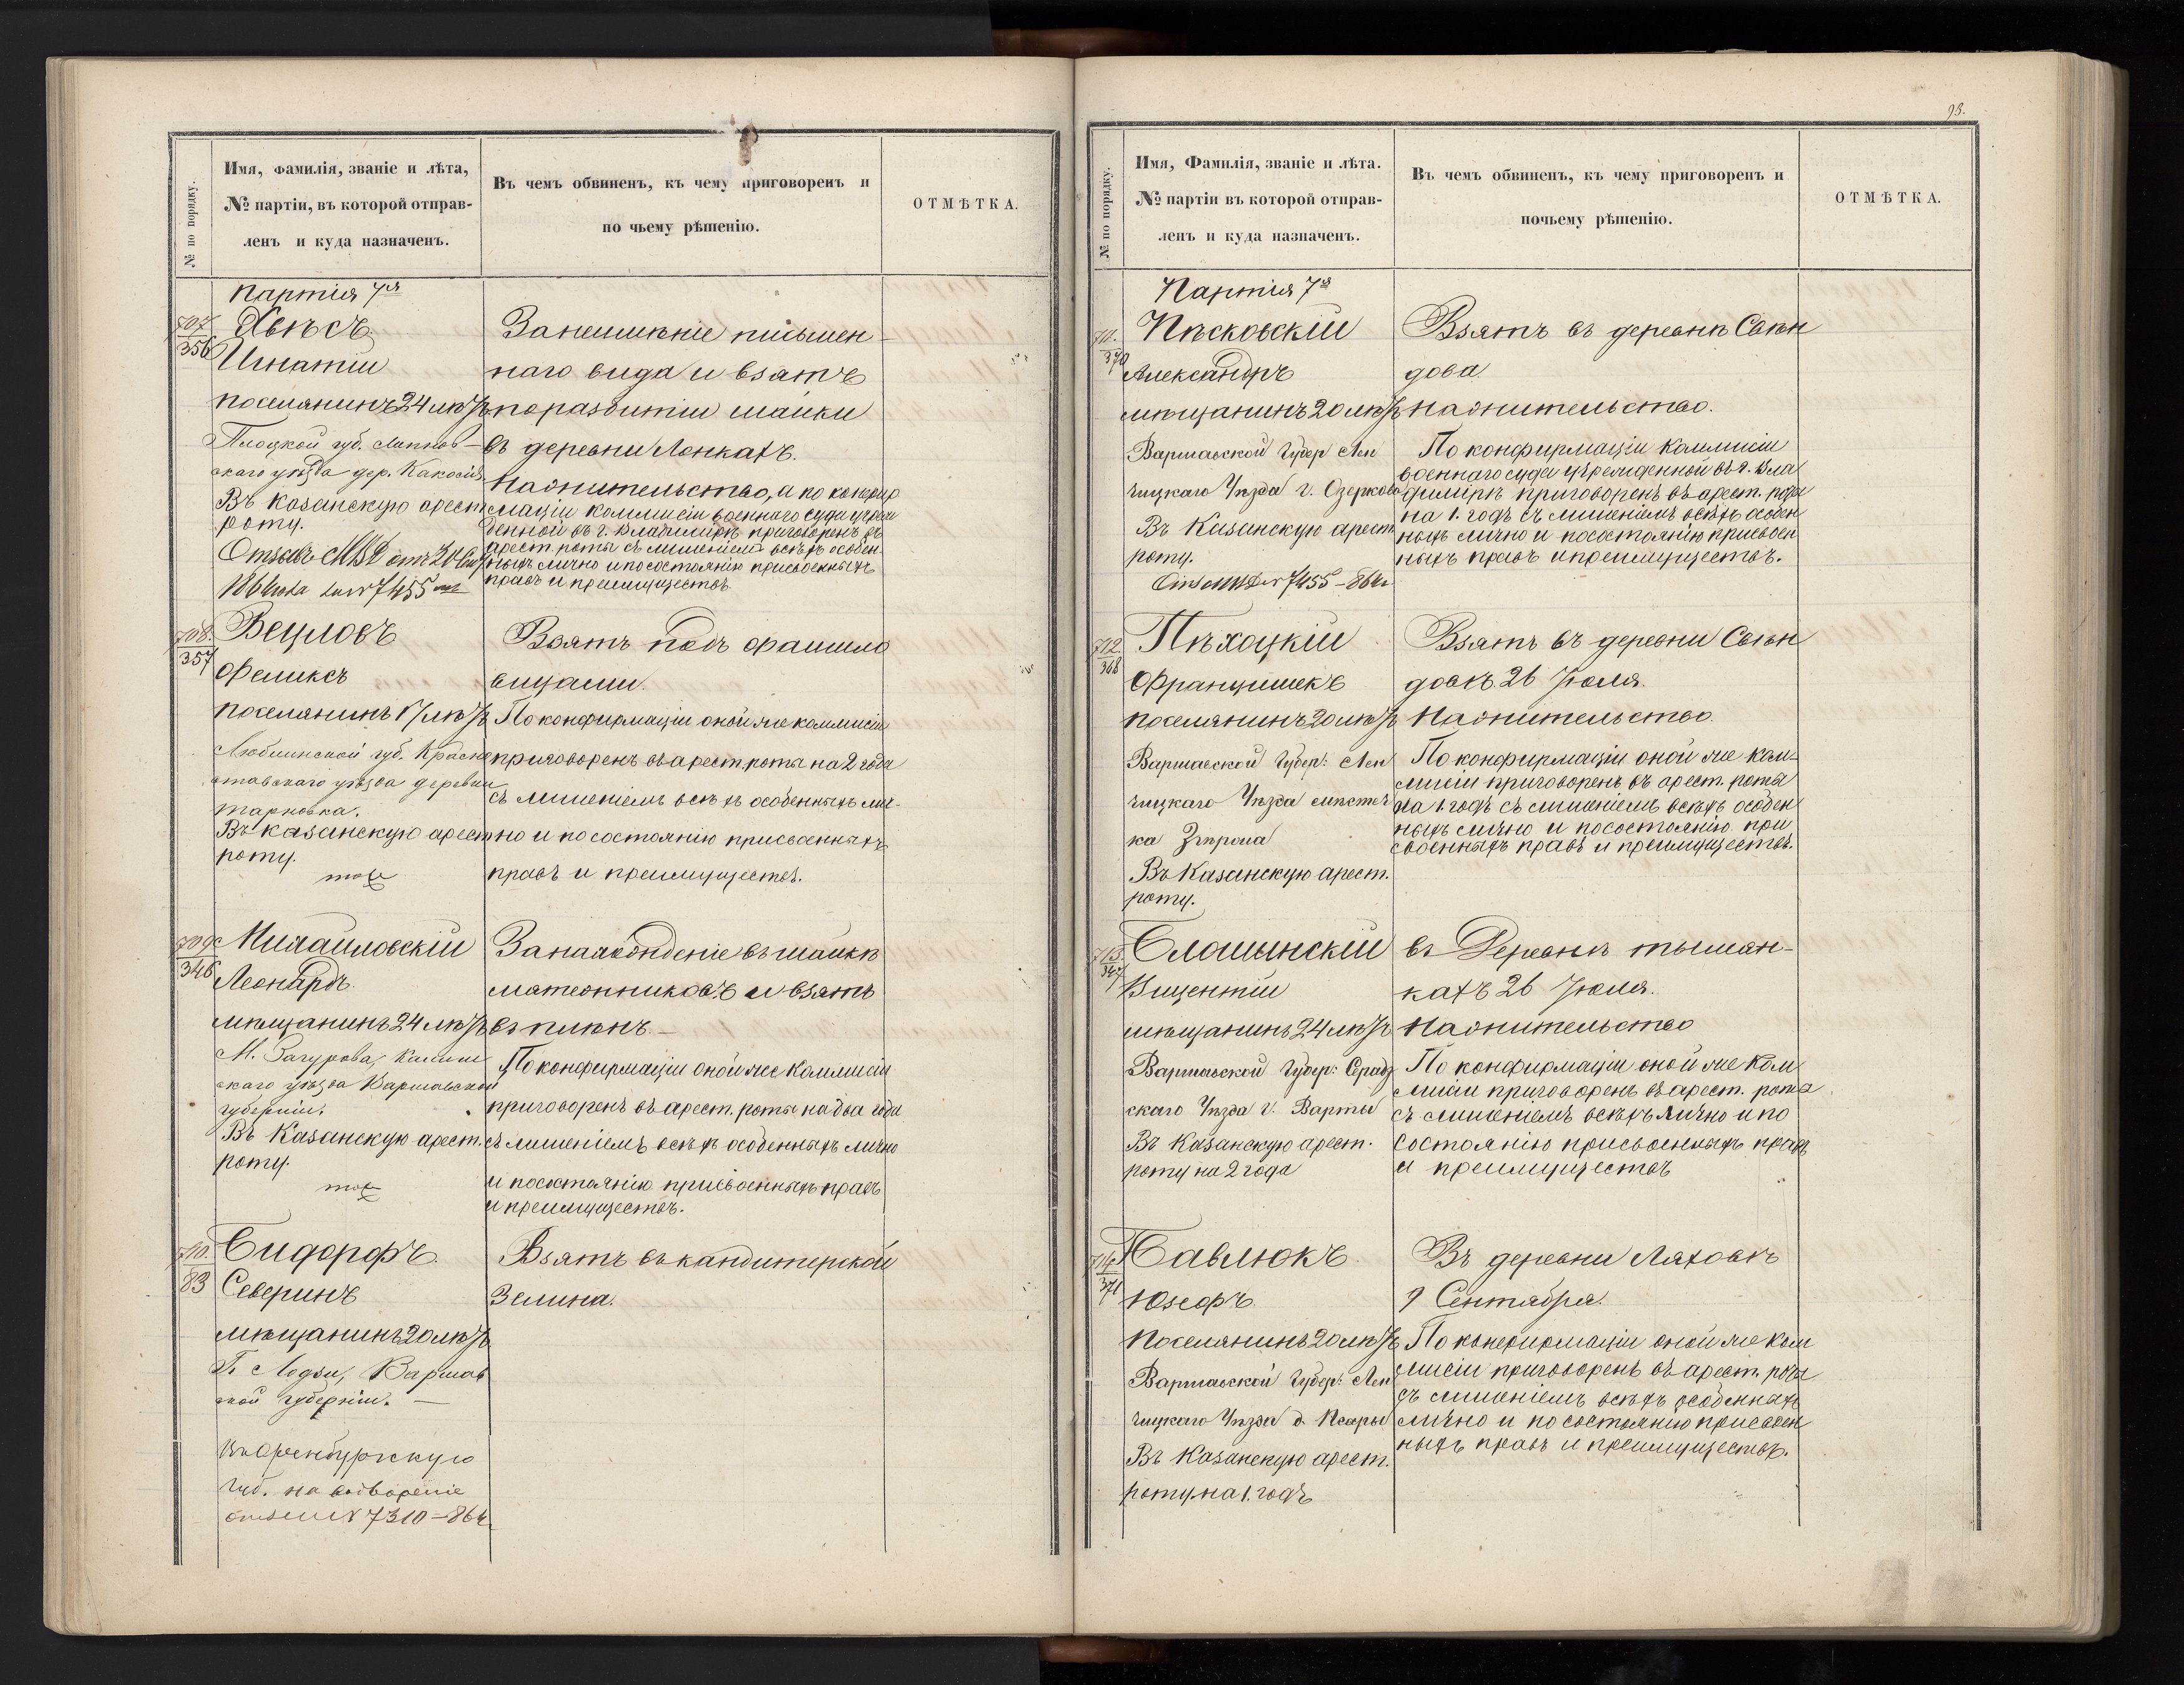 № по порядку.
Имя, фамилія, званіе и лѣта,
№ партіи, въ которой отправ-
ленъ и куда назначенъ.
Въ чемъ обвиненъ, къ чему приговоренъ и
по чьему рѣшенію.
ОТМѢТКА.
Партія 7я
707
356
Хвѣсъ
Игнатій
поселянинъ 24 лѣтъ
Плоцкой губ. Липнов-
скаго уѣзда дер.
Въ Казанскую арест
роту.
Отзывъ МВД отъ 20
1864 года за № 7455
За неимѣніе письмен-
наго вида и взятъ
по разбитіи шайки
въ деревни Ленкахъ.
На жительство, а по конфир
маціи коммисіи военнаго суда учреж
денной въ г. Владимірѣ приговоренъ въ
арест. роты съ лишеніемъ всѣхъ особен-
ныхъ лично и по состоянію присвоенныхъ
правъ и преимуществъ
708.
357
Вецловъ
Феликсъ
поселянинъ 17 лѣтъ
Люблинской губ. Красно
ставскаго уѣзда деревни
Тарновка.
Въ Казанскую арест
роту.
тоже
Взятъ подъ Файсло
вицами.
По конфирмаціи оной же коммисіи
приговоренъ въ арест. роты на 2 года
съ лишеніемъ всѣхъ особенныхъ лич-
но и по состоянію присвоенныхъ
правъ и преимуществъ.
709
346
Михайловскій
Леонардъ.
мѣщанинъ 24 лѣтъ
М. Загурова, Калиш
скаго уѣзда Варшавской
губерніи.
Въ Казанскую арест.
роту.
тоже
За нахожденіе въ шайкѣ
мятежниковъ и взятъ
въ плѣнъ.-
По конфирмаціи оной же Коммисіи
приговоренъ въ арест. роты на два года
съ лишеніемъ всѣхъ особенныхъ лично
и по состоянію присвоенныхъ правъ
и преимуществъ.
710.
83
Сидорфъ.
Северинъ
мѣщанинъ 20 лѣтъ
Г. Лодзи, Варшав
ской губерніи. —
Въ Оренбургскую
губ. на водвореніе
№ 7310-864
Взятъ въ кандитерской
Зелина.
95.
№ по порядку.
Имя, Фамилія, званіе и лѣта.
№ партіи въ которой отправ-
ленъ и куда назначенъ.
Въ чемъ обвиненъ, къ чему приговоренъ и
почьему рѣшенію.
ОТМѢТКА.
Партія 7я
711.
370
Пѣсковскій
Александръ
мѣщанинъ 20 лѣтъ
Варшавской Губер Лен
чицкаго Уѣзда г. Озеркова
Въ Казанскую арест
роту.
№ 7455-864г
Взятъ въ деревнѣ Свѣн
дова.
На жительство.
По конфирмаціи Коммисіи
военнаго суда учрежденной въ г. Вла
димірѣ приговоренъ въ арест. роты
на 1. годъ съ лишеніемъ всѣхъ особен
ныхъ лично и по состоянію присвоен
ныхъ правъ и преимуществъ.
712
368
Пѣхоцкій
Францишекъ
поселянинъ 20 лѣтъ
Варшавской Губер: Лен
чицкаго Уѣзда мѣстеч
ка Згѣрша
Въ Казанскую арест.
роту.
Взятъ въ деревни Свѣн
довѣ. 26 Іюля.
На жительство.
По конфирмаціи оной же Ком-
мисіи приговоренъ въ арест. роты
на 1. годъ съ лишеніемъ всѣхъ особен
ныхъ лично и по состоянію при
своенныхъ правъ и преимуществъ.
713
347
Сломынскій
Вицентій
мѣщанинъ 24 лѣтъ
Варшавской Губер: Серадз
скаго Уѣзда г. Варты
Въ Казанскую арест.
роту на 2 года
въ Деревнѣ тымян-
кахъ 26 Іюля.
На жительство
По конфирмаціи оной же Ком
мисіи приговоренъ въ арест. роты
съ лишеніемъ всѣхъ лично и по
состоянію присвоенныхъ правъ
и преимуществъ
714
371
Павлюкъ.
Юзефъ.
Поселянинъ 20 лѣтъ
Варшавской Губер: Лен
чицкаго Уѣзда д. Псары
Въ Казанскую арест.
роту на 1. годъ
Въ деревни Ляховкѣ
9 Сентября.
По конфирмаціи оной же Ком
мисіи приговоренъ въ арест. роты
съ лишеніемъ всѣхъ особенныхъ
лично и по состоянію присвоен
ныхъ правъ и преимуществъ.